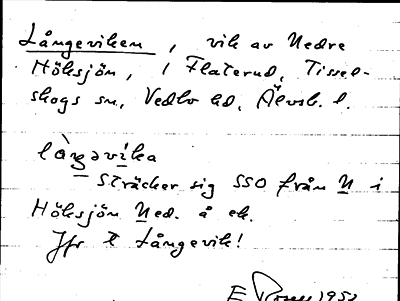 Långeviken, vik av Nedre
Höksjön, i Flaterud, Tissel-
skogs sn, Vedbo hd, Älvsb. l.
lång̀əvi̍ka
Sträcker sig SSO från N i
Höksjön Ned. å ek.
Jfr t Långevik!
E 1952